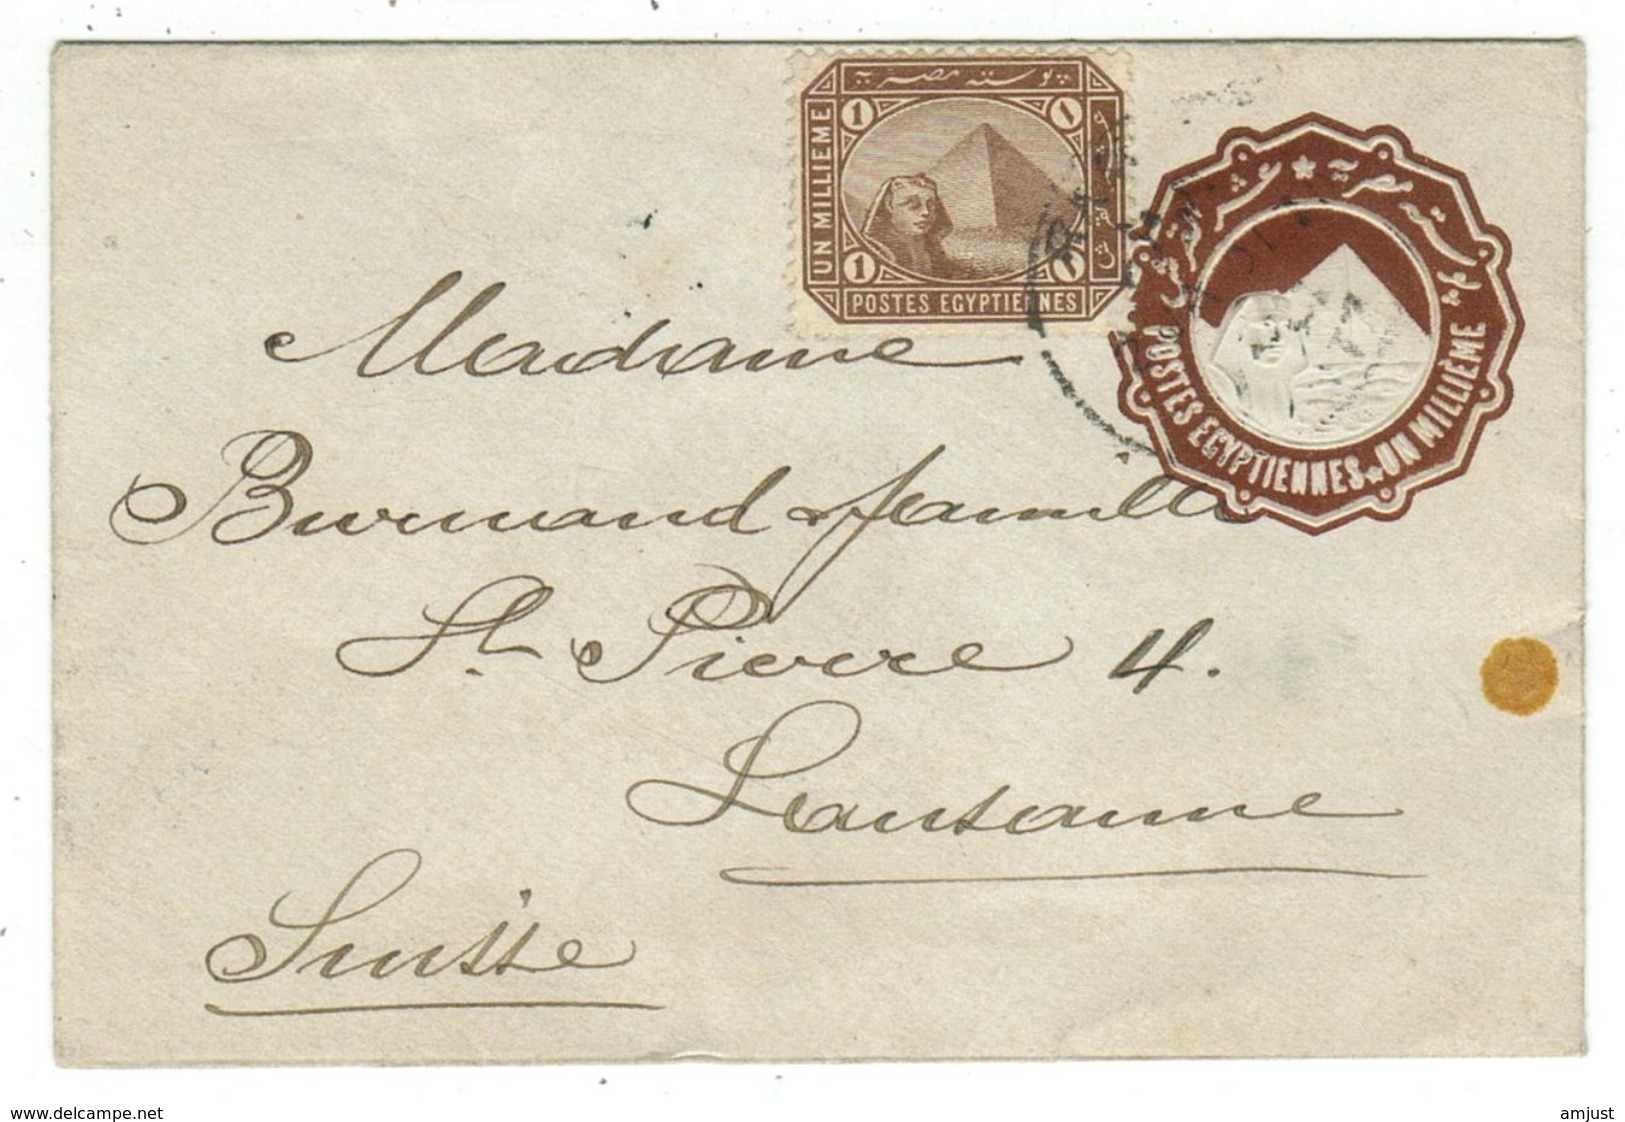 بوستة مصرية
UN MILLIEME
1
١
1
١
POSTES EGYPTIENNES
عشر القرش
بوستة مصرية
POSTES EGYPTIENNES
UN MILLIÈME
Madame
Burnand
St Pierre 4.
Lausanne
Suisse
www.delcampe.net
amjust